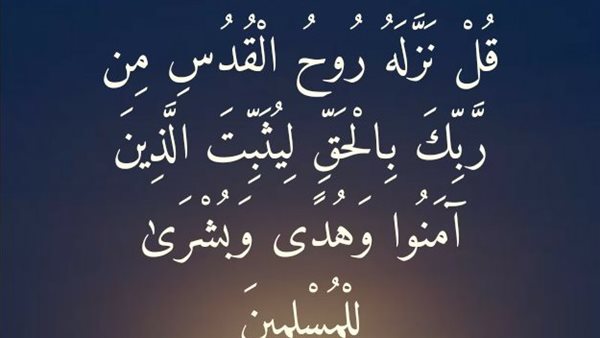 قُلْ نَزَّلَهُ رُوحُ الْقُدُسِ مِن
رَّبِّكَ بِالْحَقِّ لِيُثَبِّتَ الَّذِينَ
آمَنُوا وَهُدًى وَبُشْرَىٰ
لِلْمُسْلِمِينَ